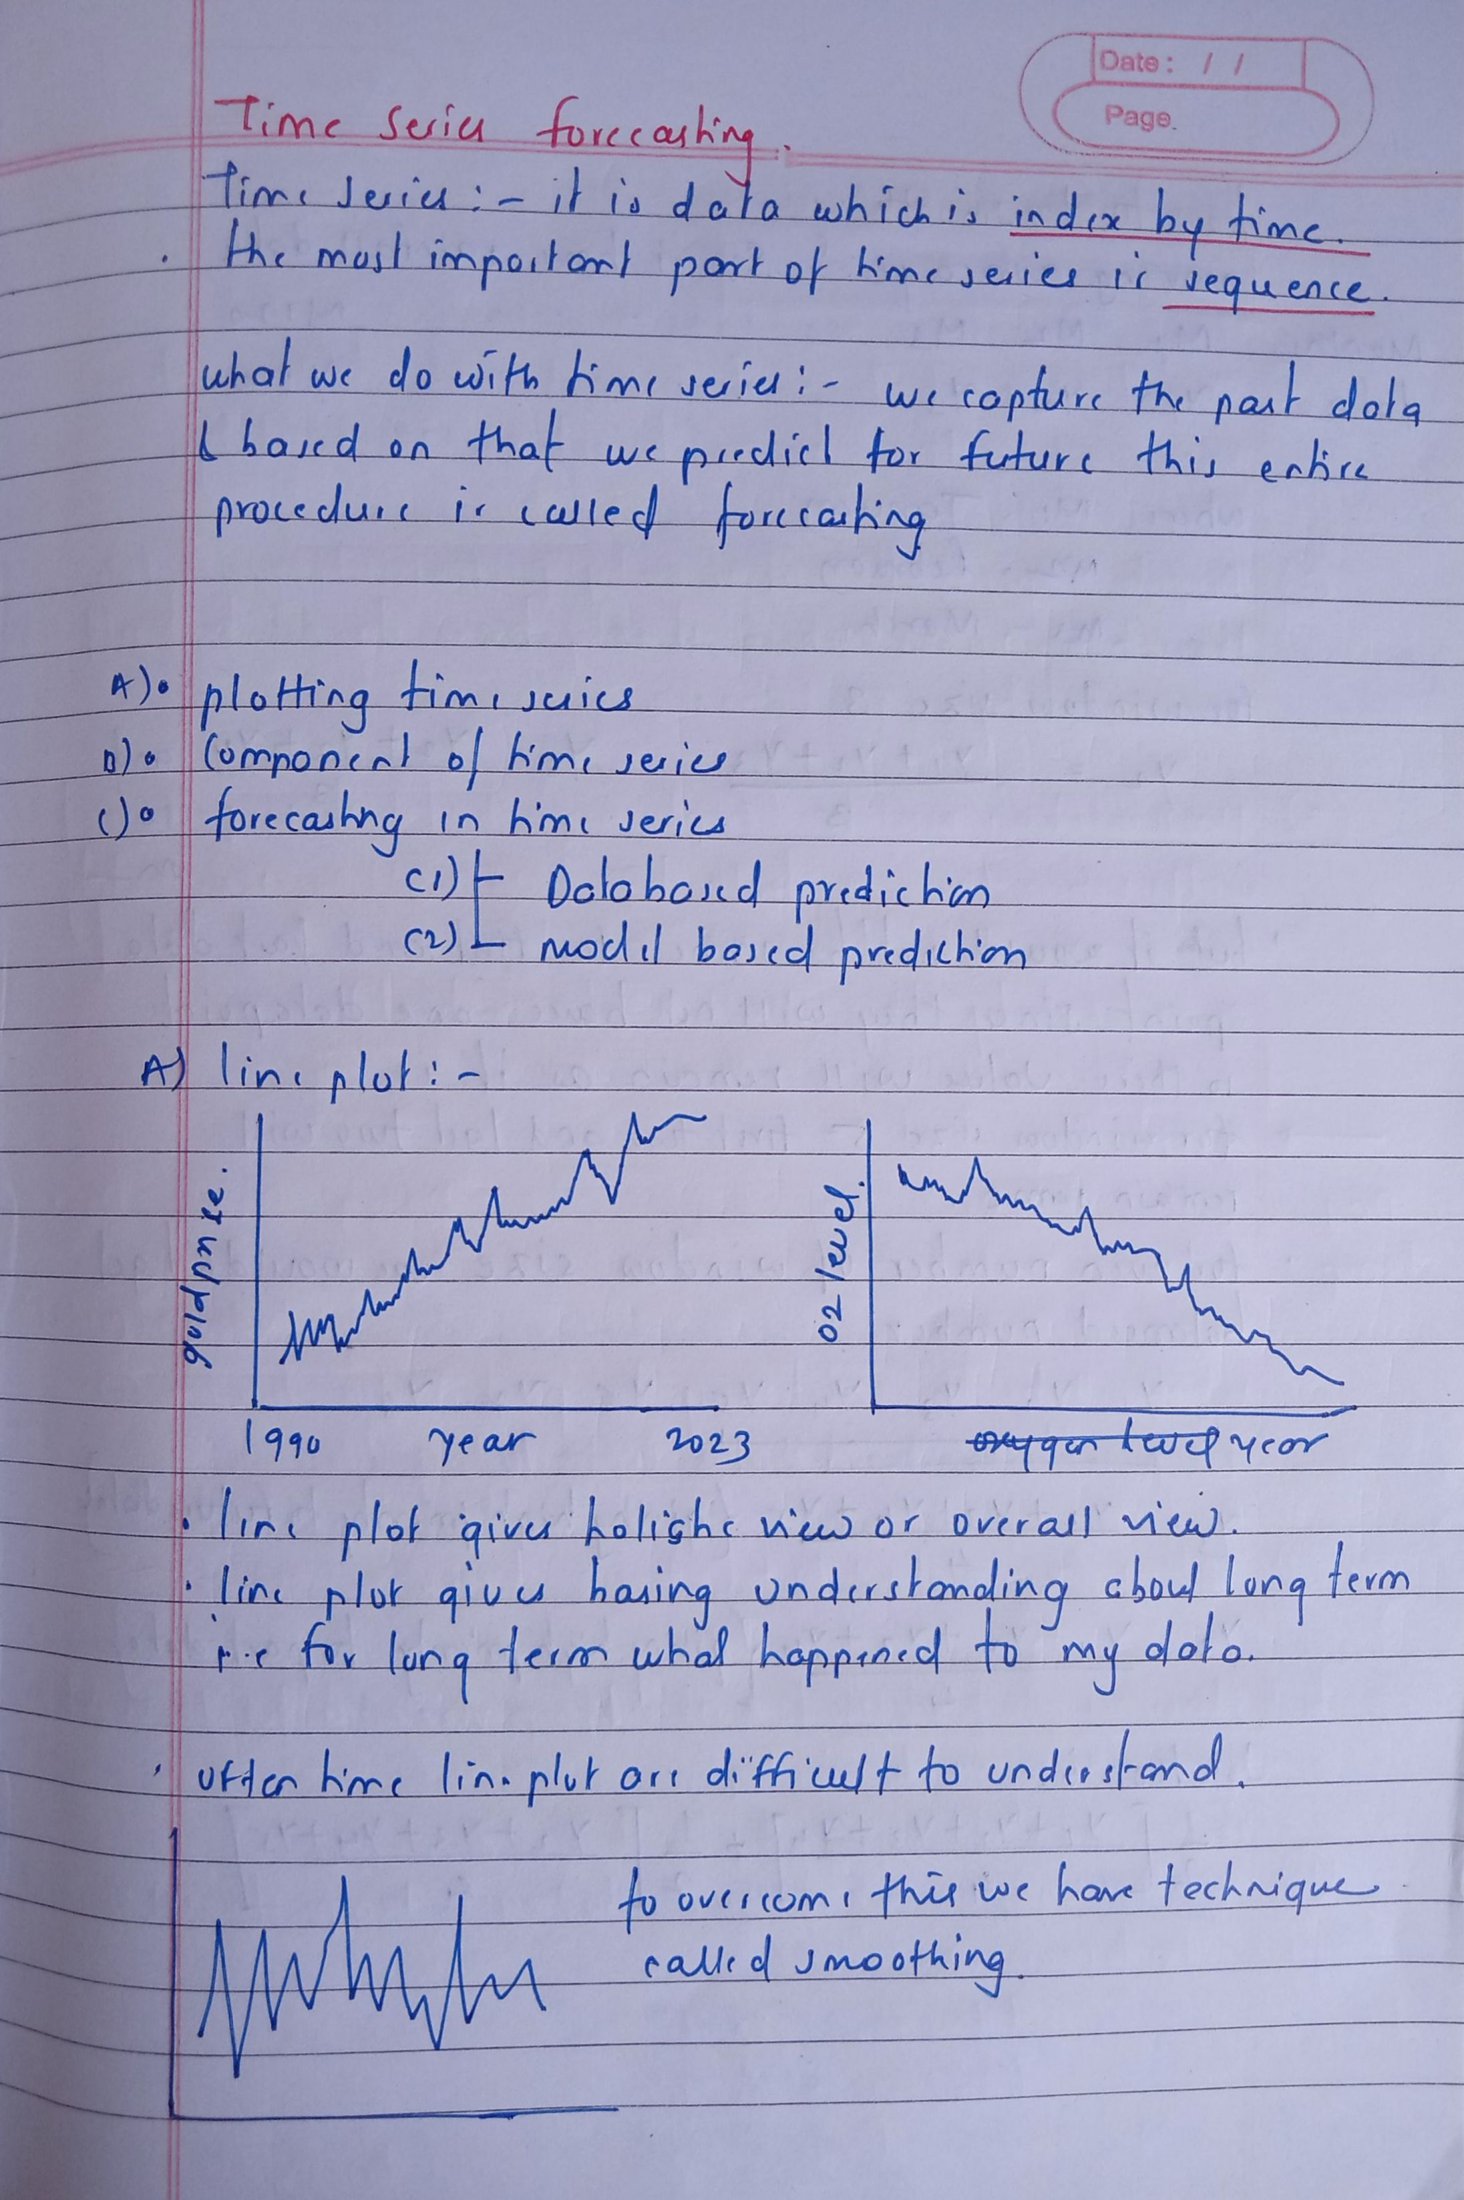 Date: / /
Page.
Time series forecasting.
Time series :- it is data which is index by time.
. the most important part of time series is sequence.
what we do with time series :- we capture the past data
& based on that we predict for future this entire
procedure is called forecasting
A) • plotting time series
B) • Component of time series
C) • forecasting in time series
C1) Data based prediction
C2) model based prediction
A) line plot :-
gold price.
1990 year 2023
O2 level.
oxygen level year
. line plot gives holistic view or overall view.
. line plot gives basing understanding about long term
i.e for long term what happened to my data.
. often time line plot are difficult to understand.
to overcome this we have technique
called smoothing.